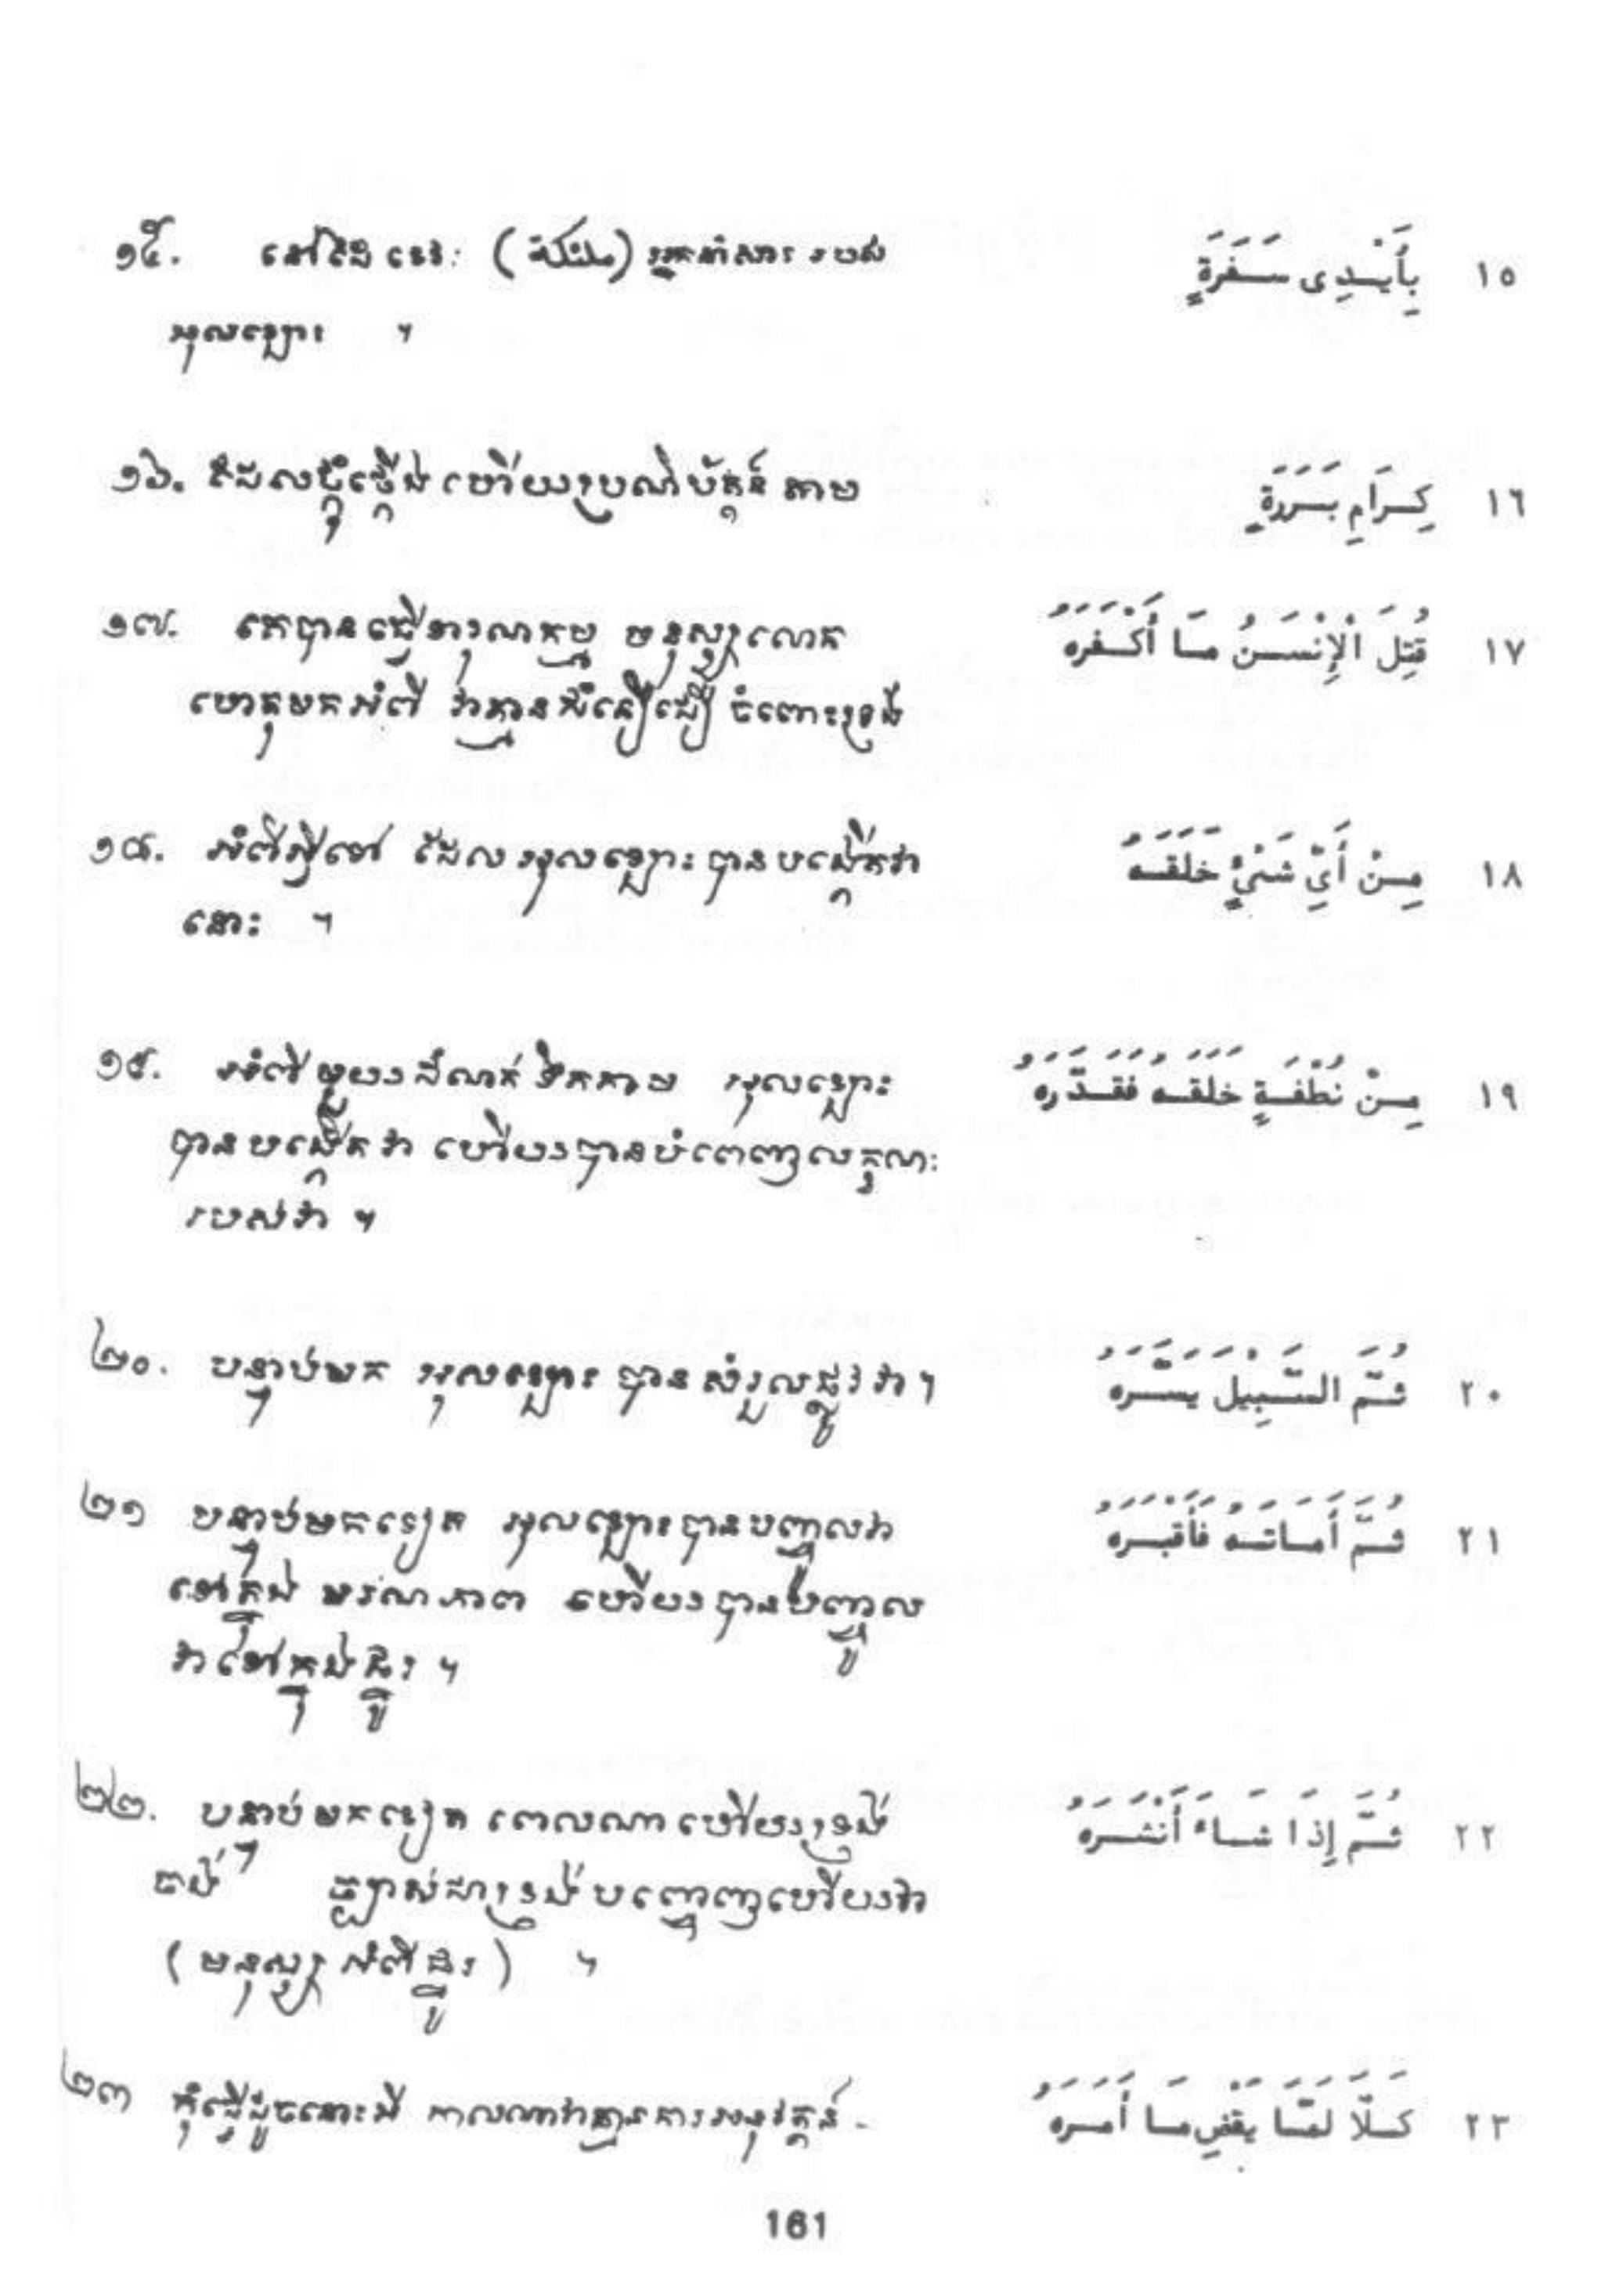 ១៥. នៅនឹង ទេវៈ (ملائكة) អ្នកនាំសារ របស់
អុលឡោះ ។
بِأَيْدِى سَفَرَةٍ ١٥
១៦. ដែលខ្ពង់ខ្ពស់ ហើយប្រណិប័តន៍ តាម
كِرَامٍ بَرَرَةٍ ١٦
១៧. គេបានធ្វើទារុណកម្ម មនុស្សលោក
ហេតុមកអំពី វាគ្មានជំនឿជឿ ចំពោះទ្រង់
قُتِلَ الْإِنْسَـنُ مَا أَكْفَرَهُ ١٧
១៨. អំពីអ្វីទៅ ដែលអុលឡោះ បានបង្កើតវា
នោះ ។
مِنْ أَىِّ شَىْءٍ خَلَقَهُ ١٨
១៩. អំពីមួយដំណក់ ទឹកកាម អុលឡោះ
បានបង្កើតវា ហើយបានបំពេញលក្ខណៈ
របស់វា ។
مِنْ نُطْفَةٍ خَلَقَهُ فَقَدَّرَهُ ١٩
២០. បន្ទាប់មក អុលឡោះ បានសំរួលផ្លូវវា ។
ثُمَّ السَّبِيلَ يَسَّرَهُ ٢٠
២១ បន្ទាប់មកទៀត អុលឡោះបានបញ្ចូលវា
ទៅក្នុង មរណភាព ហើយបានបញ្ចូល
វាទៅក្នុងផ្នូរ ។
ثُمَّ أَمَاتَهُ فَأَقْبَرَهُ ٢١
២២. បន្ទាប់មកទៀត ពេលណាហើយទ្រង់
ចង់ ច្បាស់ជាទ្រង់បញ្ចេញហើយវា
(មនុស្ស អំពីផ្នូរ) ។
ثُمَّ إِذَا شَاءَ أَنْشَرَهُ ٢٢
២៣ កុំធ្វើដូចនោះអី កាលណាវាគ្មានការអនុវត្តន៍ -
كَلَّا لَمَّا يَقْضِ مَا أَمَرَهُ ٢٣
161